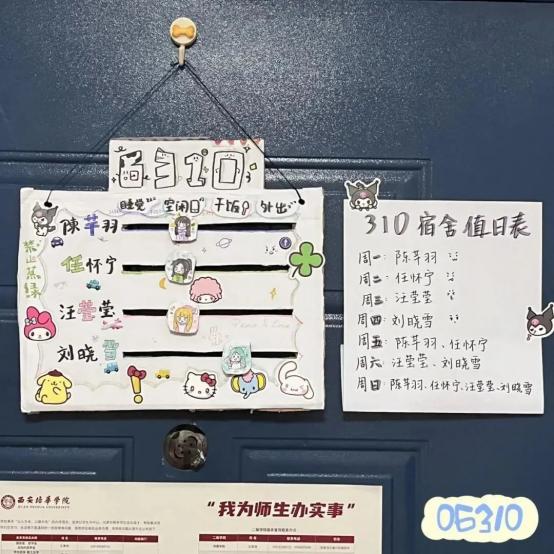 6310
睡觉 空闲 干饭 外出
陈芊羽
禁止蕉绿
任怀宁
汪莹莹
刘晓雪
310宿舍值日表
周一: 陈芊羽
周二: 任怀宁
周三: 汪莹莹
周四: 刘晓雪
周五: 陈芊羽、任怀宁
周六: 汪莹莹、刘晓雪
周日: 陈芊羽、任怀宁、汪莹莹、刘晓雪
西安培华学院
“我为师生办实事”
06310